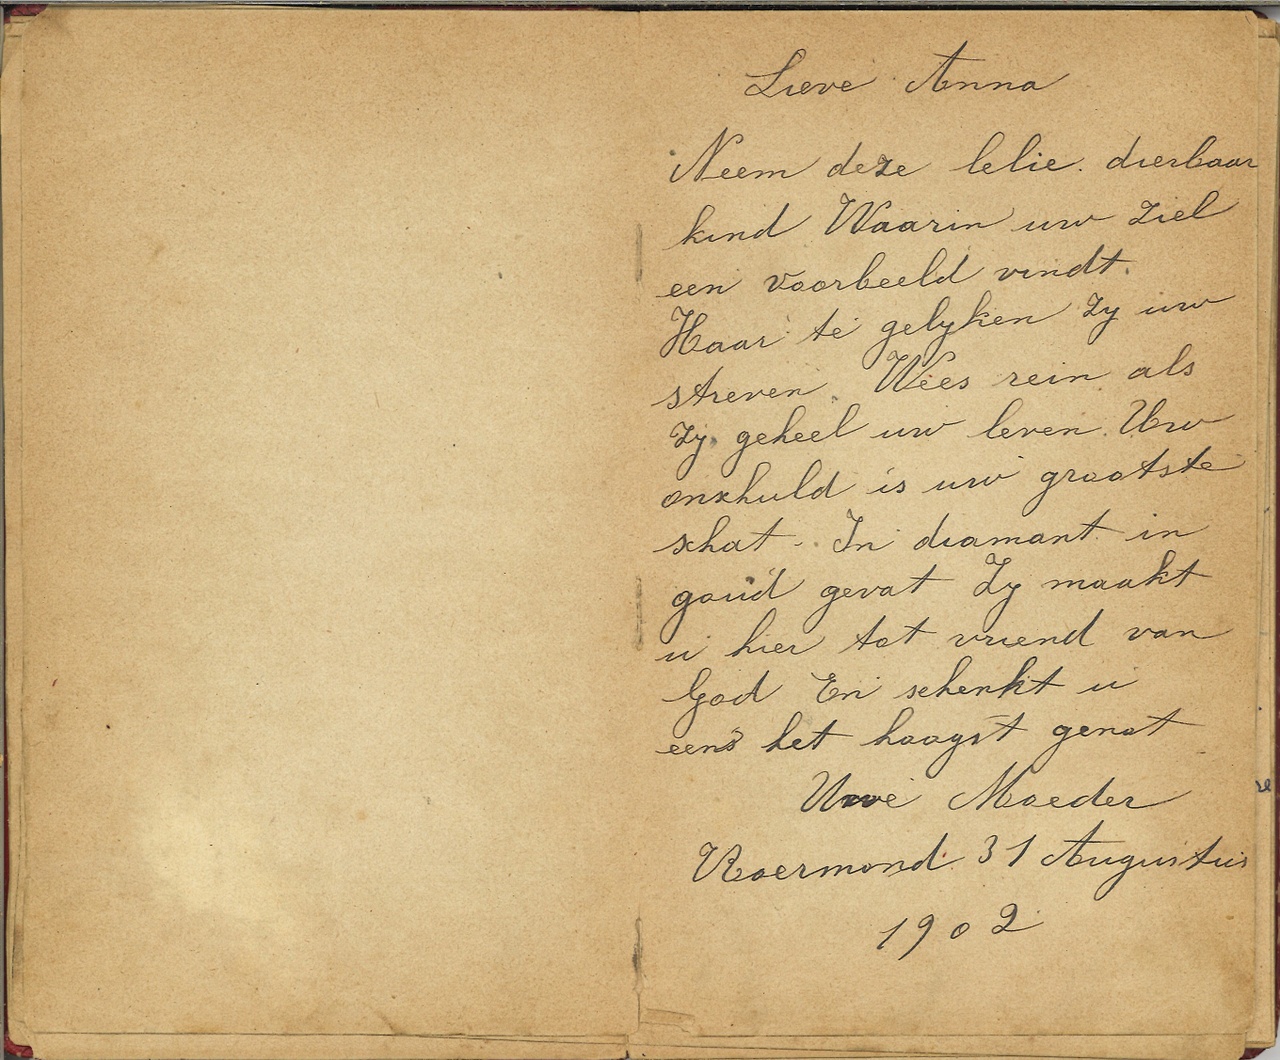 Lieve Anna
Neem deze lelie. dierbaar
kind Waarin uw ziel
een voorbeeld vindt.
Haar te gelyken zy uw
streven. Wees rein als
zy geheel uw leven. Uw
onschuld is uw grootste
schat. In diamant in
goud gevat Zy maakt
u hier tot vriend van
God En schenkt u
eens het hoogst genot
Uwe Moeder
Roermond 31 Augustus
1902